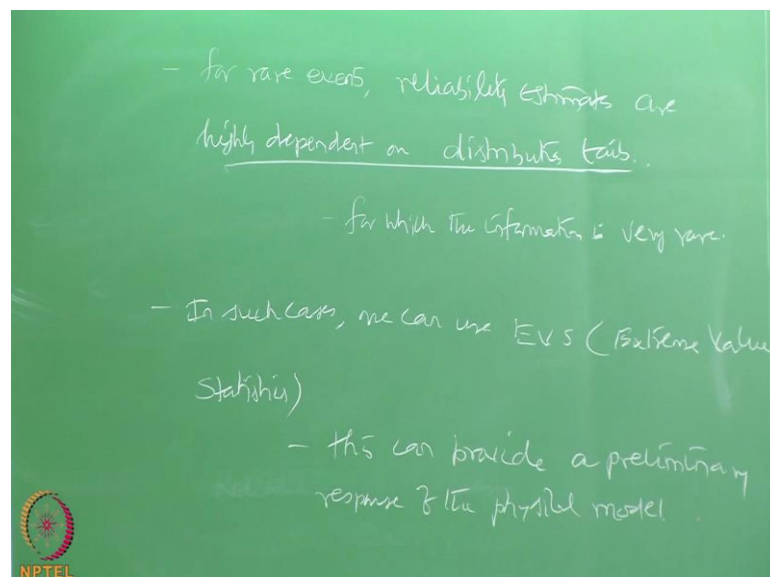 - for rare events, reliability estimates are
highly dependent on distribution tails.
- for which the information is very rare.
- In such cases, we can use EVS (Extreme Value
Statistics)
- this can provide a preliminary
response of the physical model.
NPTEL